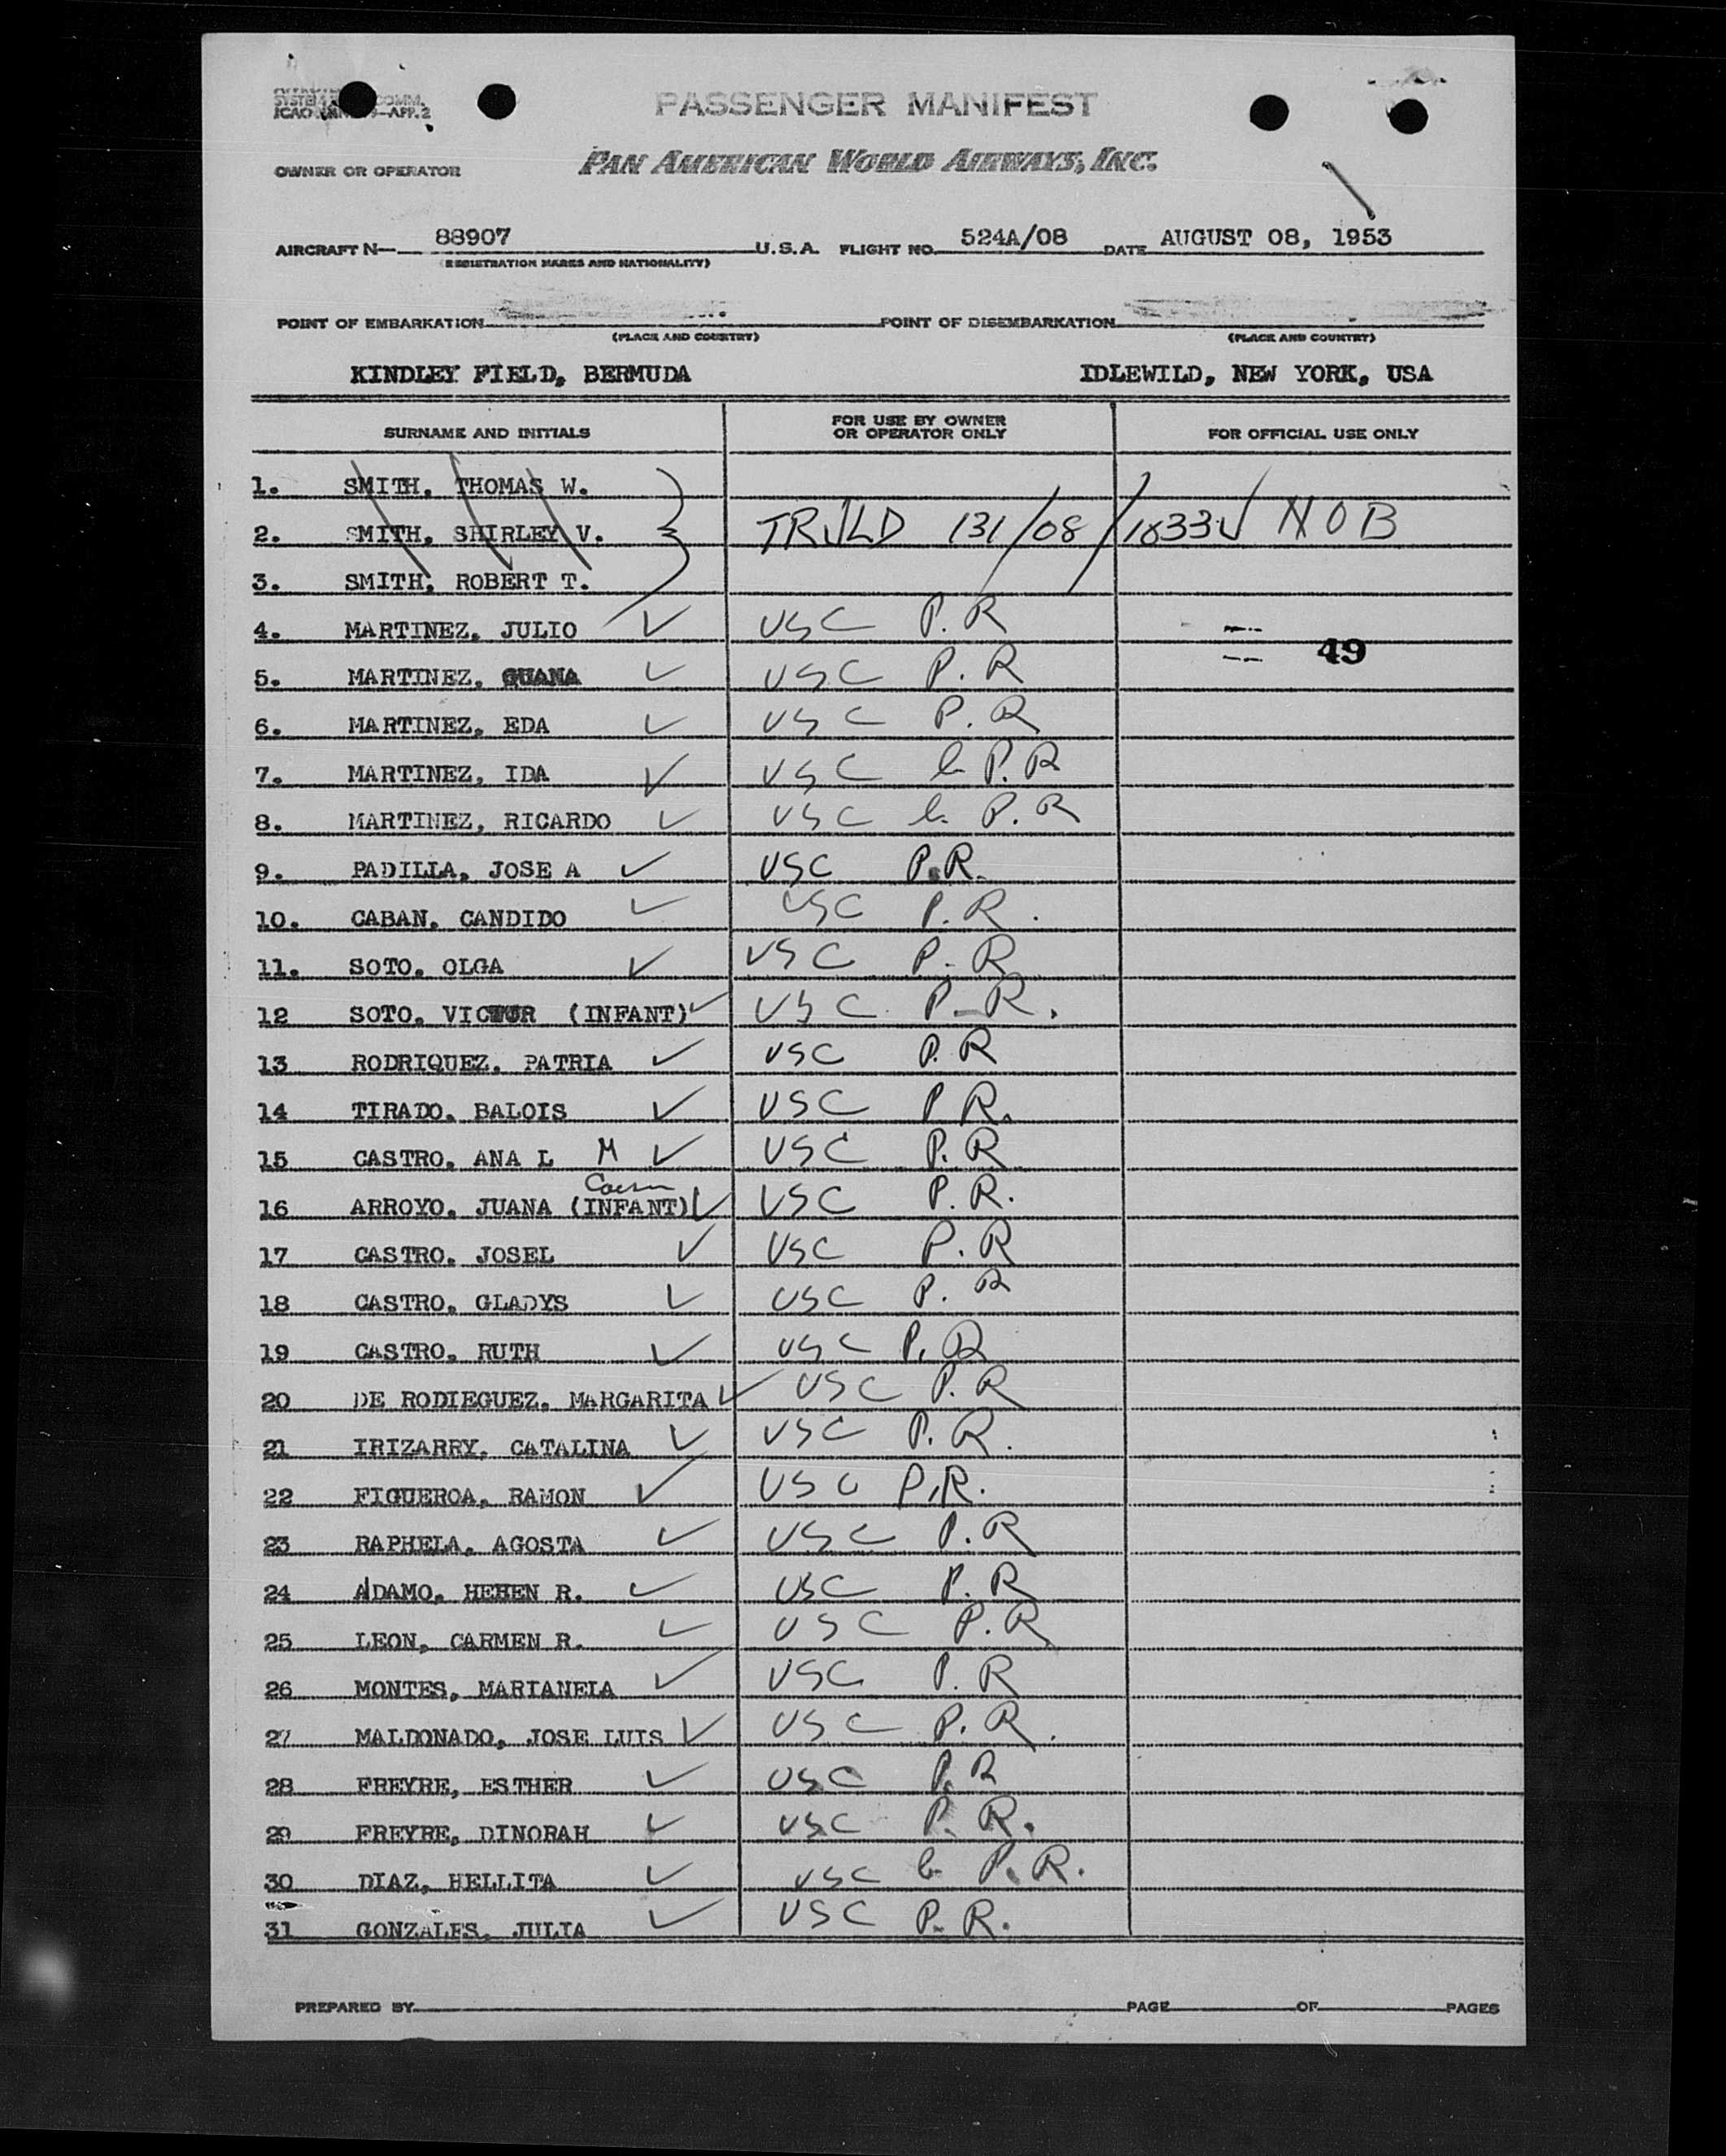 SYSTEM COMM.
ICAO ANNEX 9—APP. 2
PASSENGER MANIFEST
OWNER OR OPERATOR PAN AMERICAN WORLD AIRWAYS, INC.
AIRCRAFT N— 88907 U.S.A. FLIGHT NO. 524A/08 DATE AUGUST 08, 1953
(REGISTRATION MARKS AND NATIONALITY)
POINT OF EMBARKATION POINT OF DISEMBARKATION
(PLACE AND COUNTRY) (PLACE AND COUNTRY)
KINDLEY FIELD, BERMUDA IDLEWILD, NEW YORK, USA
SURNAME AND INITIALS FOR USE BY OWNER OR OPERATOR ONLY FOR OFFICIAL USE ONLY
1. SMITH, THOMAS W.
2. SMITH, SHIRLEY V. 131/08 NOB
3. SMITH, ROBERT T.
4. MARTINEZ, JULIO ✓ USC P.R
49
5. MARTINEZ, GUANA ✓ USC P.R
6. MARTINEZ, EDA ✓ USC P.R
7. MARTINEZ, IDA ✓ USC b. P.R
8. MARTINEZ, RICARDO ✓ USC b. P.R
9. PADILLA, JOSE A ✓ USC P.R.
10. CABAN, CANDIDO ✓ USC P.R.
11. SOTO, OLGA ✓ USC P.R
12 SOTO, VICTOR (INFANT) ✓ USC P.R.
13 RODRIQUEZ, PATRIA ✓ USC P.R
14 TIRADO, BALOIS ✓ USC P R.
15 CASTRO, ANA L M ✓ USC P.R
16 ARROYO, JUANA (INFANT) ✓ USC P.R.
17 CASTRO, JOSEL ✓ USC P.R
18 CASTRO, GLADYS ✓ USC P.R
19 CASTRO, RUTH ✓ USC P.R
20 DE RODIEGUEZ, MARGARITA ✓ USC P.R
21 IRIZARRY, CATALINA ✓ USC P.R.
22 FIGUEROA, RAMON ✓ USC P.R.
23 RAPHELA, AGOSTA ✓ USC P.R
24 ADAMO, HEHEN R. ✓ USC P.R
25 LEON, CARMEN R. ✓ USC P.R
26 MONTES, MARIANELA ✓ USC P.R
27 MALDONADO, JOSE LUIS ✓ USC P.R.
28 FREYRE, ESTHER ✓ USC P.R
29 FREYRE, DINORAH ✓ USC P.R.
30 DIAZ, HELLITA ✓ USC b P.R.
31 GONZALES, JULIA ✓ USC P.R.
PREPARED BY PAGE OF PAGES